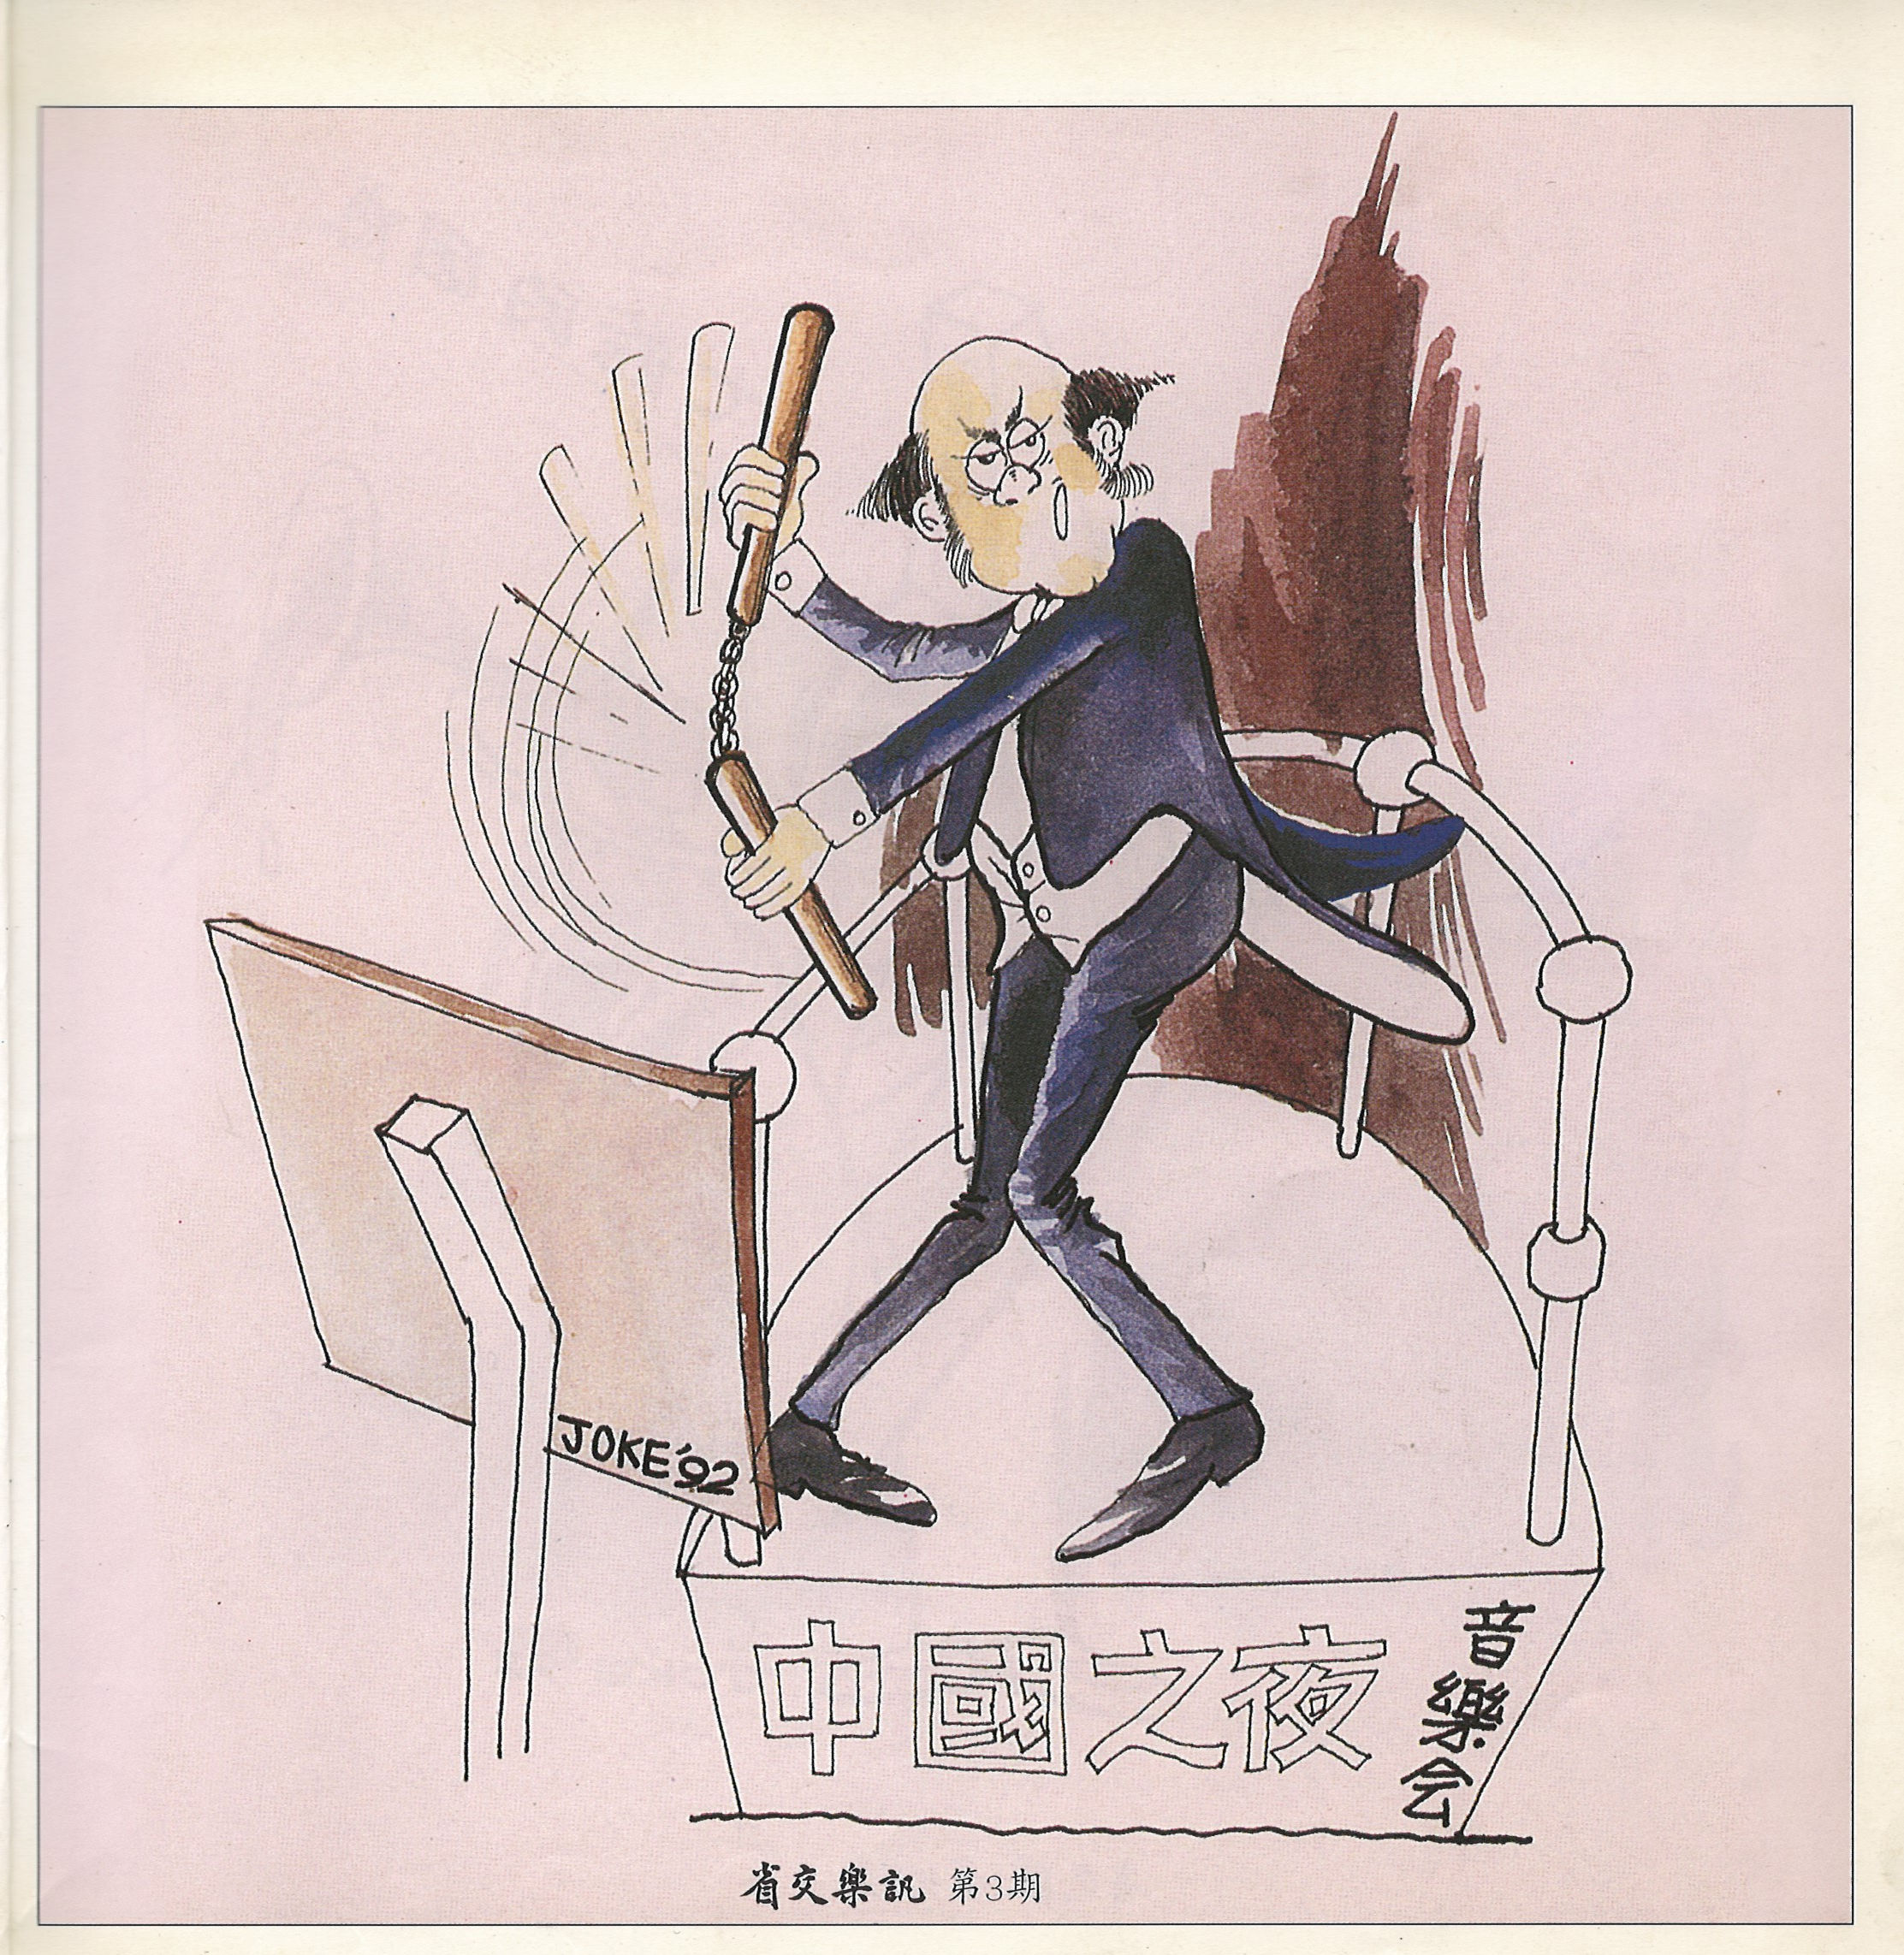 JOKE'92
中國之夜
音樂会
省交樂訊 第3期